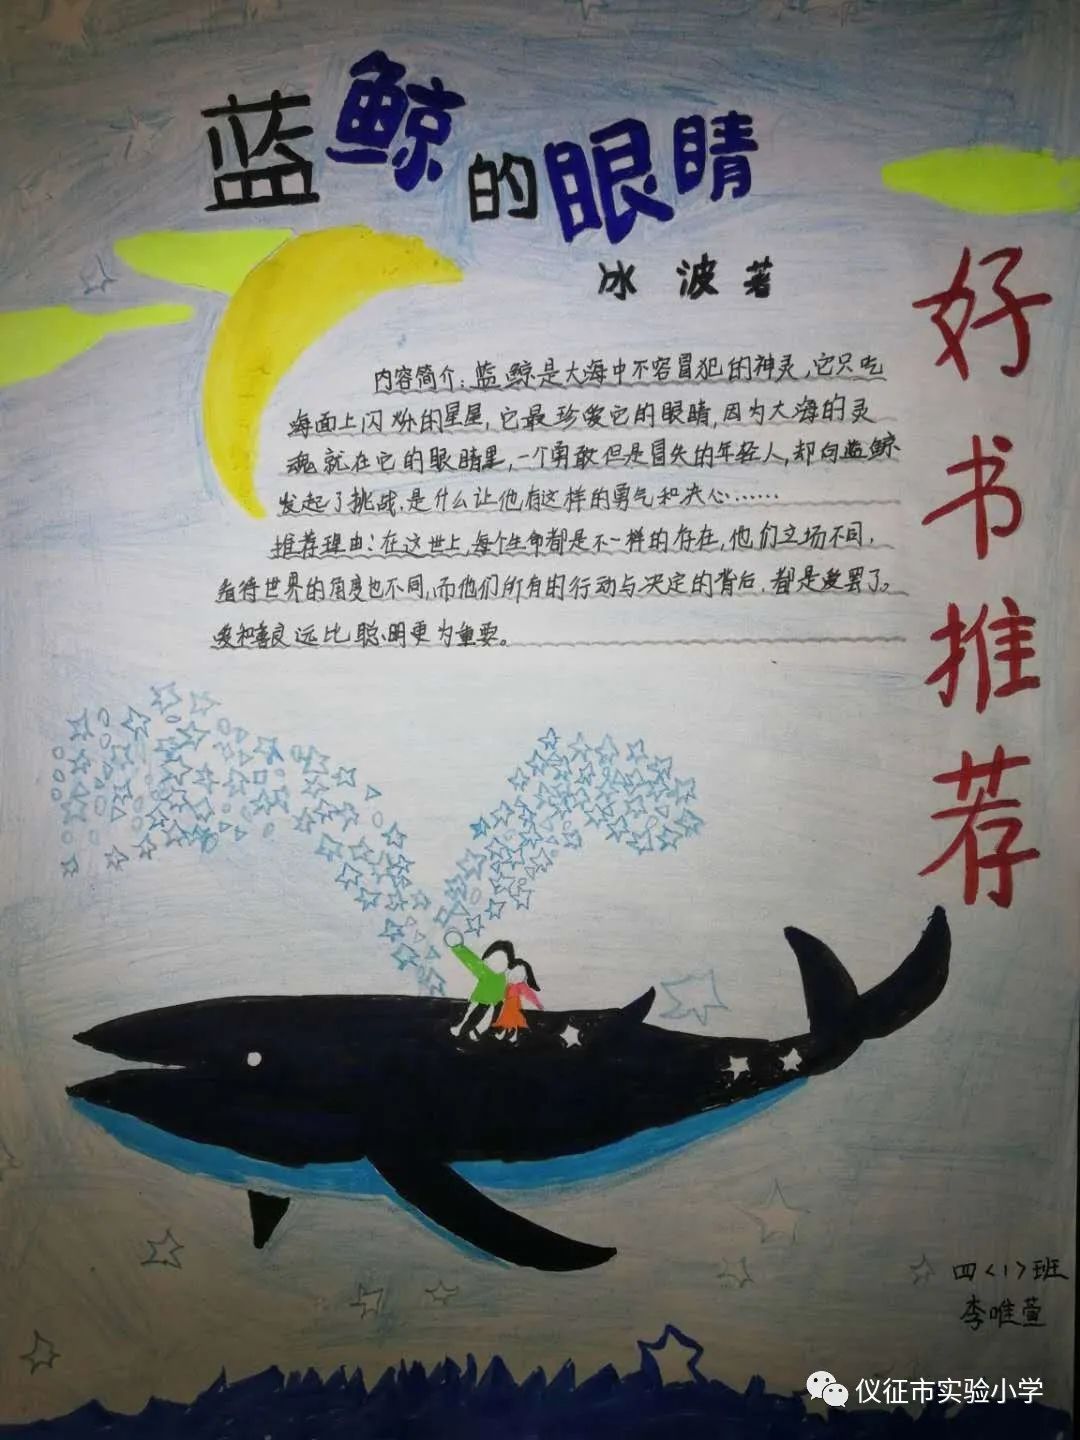 蓝鲸的眼睛
冰波著
好书推荐
内容简介：蓝鲸是大海中不容冒犯的神灵，它只吃
海面上闪烁的星星，它最珍爱它的眼睛，因为大海的灵
魂就在它的眼睛里，一个勇敢但是冒失的年轻人，却向蓝鲸
发起了挑战，是什么让他有这样的勇气和决心……
推荐理由：在这世上，每个生命都是不一样的存在，他们立场不同，
看待世界的角度也不同，而他们所有的行动与决定的背后，都是爱罢了。
爱和善良远比聪明更为重要。
四〈1〉班
李唯萱
仪征市实验小学